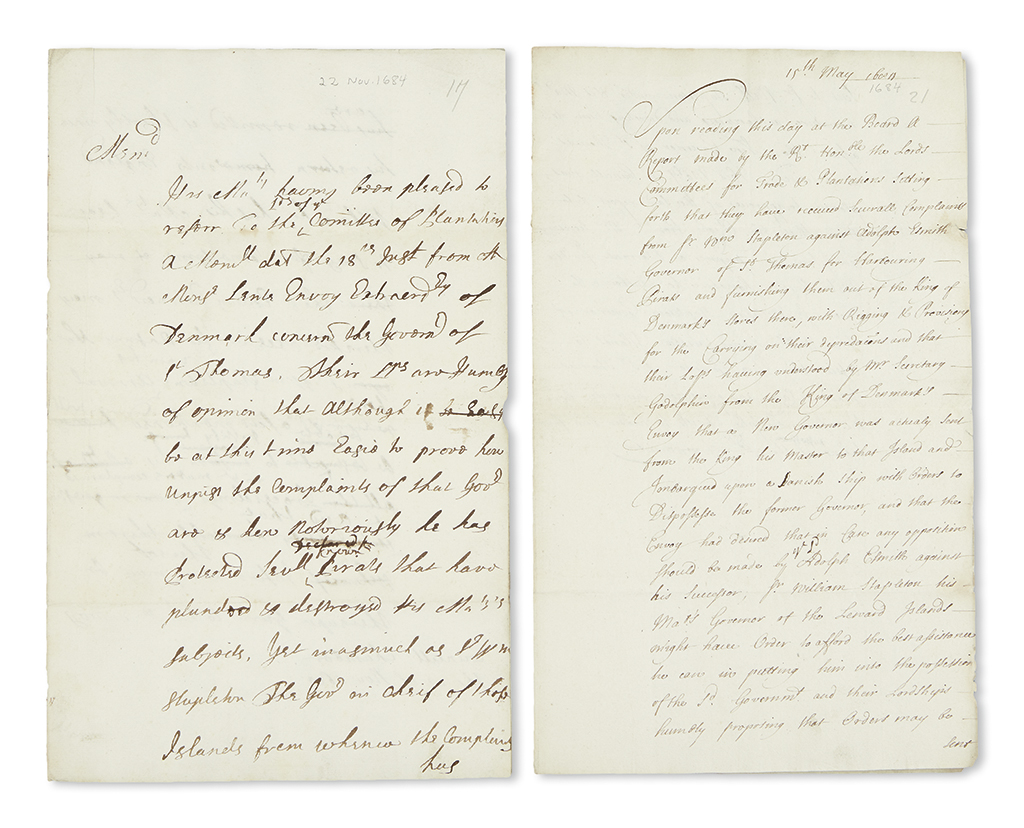 22 Nov. 1684
Mem^d
His Ma^ty having been pleased to
referr to the Comittee of Plantations
A Mem^ll dat the 18^th Inst from
Mons^r Lente Envoy Extraord^ry of
Denmark concern the Govern^r of
S^t Thomas. Their Lps are humbly
of opinion that Although it
be at this time Easie to prove how
unjust the Complaints of that Gov^r
are & how Notoriously he has
known
Protected sev^ll Pirats that have
plundred & destroyed His Ma^ty's
subjects, Yet inasmuch as S^r W^m
Stapleton The Gov^r in Cheif of those
Islands from whence the Complaint
has
15^th May 1684
1684
21
Upon reading this day at the Board A
Report made by the R^t Hon^ble the Lords
Committees for Trade & Plantations Setting
forth that they have received Severall Complaints
from S^r W^m Stapleton against Adolph Esmith
Governor of S^t Thomas for Harbouring
Pirats and furnishing them out of the King of
Denmarks Stores there, with Rigging & Provisions
for the Carrying on their depredacions and that
their Lo^ps having understood by M^r Secretary
Godolphin from the King of Denmarks
Envoy that a New Governor was actualy Sent
from the King his Master to that Island and
Imbarqued upon a Danish Ship with Orders to
Dispossesse the former Governor, and that the
Envoy had desired that in Case any opposition
should be made by y^e s^d Adolph Esmith against
his Successor, S^r William Stapleton his
Ma^ts Governor of the Leward Islands
might have Order to afford the best assistance
he can in putting him into the possession
of the s^d Governm^t and their Lordships
humbly proposing that Orders may be
sent